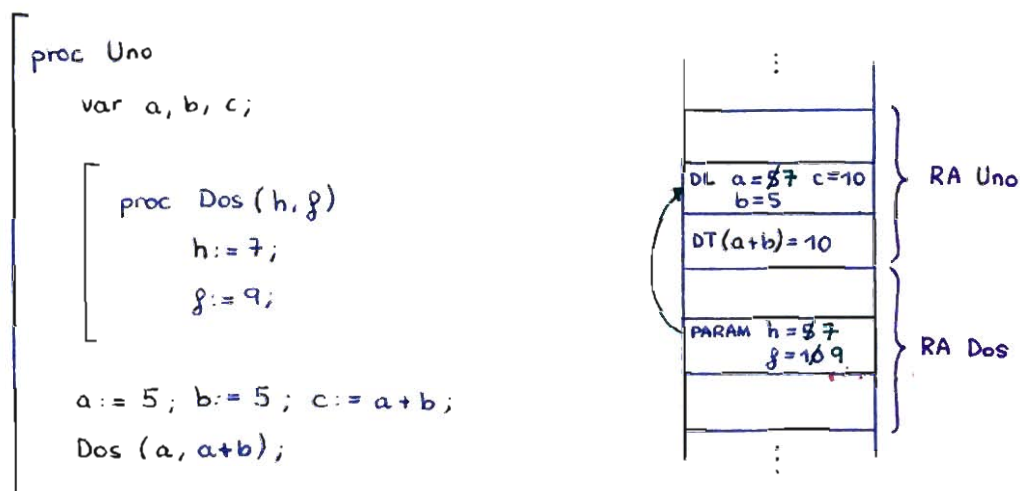 proc Uno
var a, b, c;
proc Dos (h, g)
h := 7;
g := 9;
a := 5; b := 5; c := a+b;
Dos (a, a+b);
⋮
DL a=5 7 c=10
b=5
DT (a+b) = 10
RA Uno
PARAM h=5 7
g=10 9
RA Dos
⋮